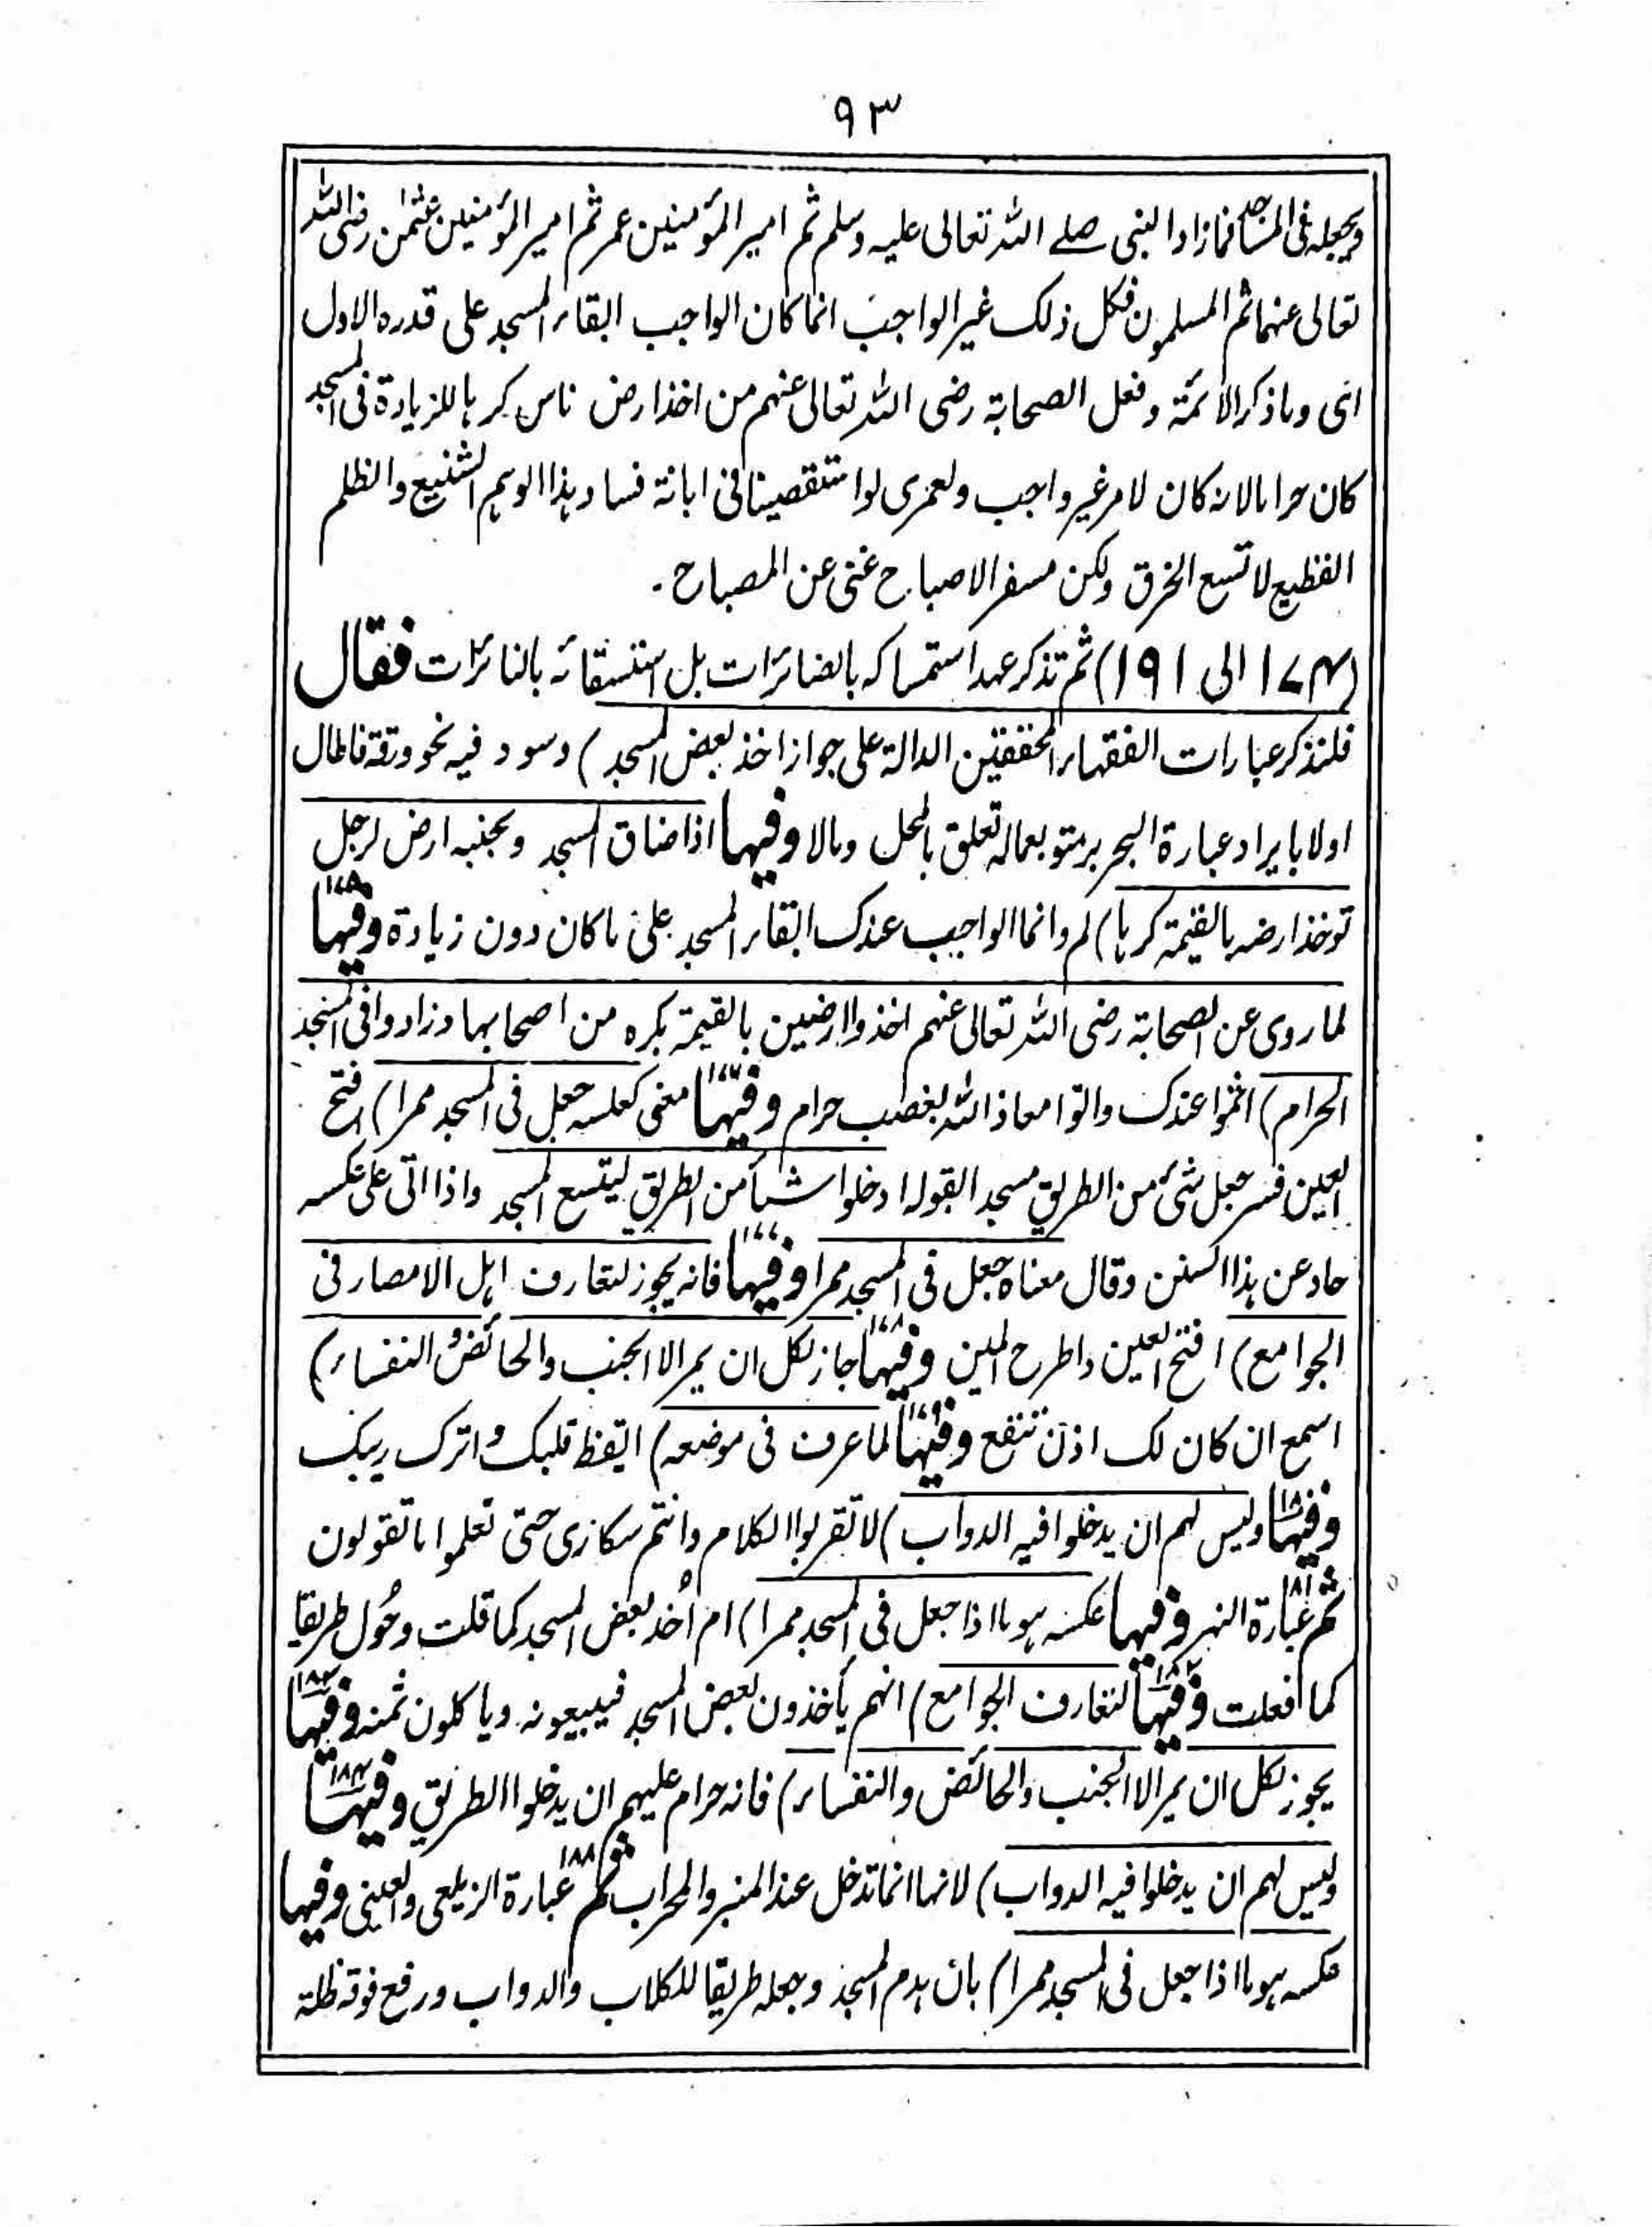 ٩٣
ويجعله فى المساجد فما زاد النبى صلے الله تعالى عليه وسلم ثم امير المؤمنين عمر ثم امير المؤمنين عثمٰن رضى الله
تعالى عنهما ثم المسلمون فكل ذلك غير الواجب انما كان الواجب ابقاء المسجد على قدره الاول
اى وما ذكر الائمة وفعل الصحابة رضى الله تعالى عنهم من اخذ ارض ناس كرها للزيادة فى المسجد
كان حراما لانه كان لامر غير واجب ولعمرى لو استقصينا فى ابانة فساد هذا الوهم الشنيع والظلم
الفظيع لا تسع الخرق ولكن مسفر الاصباح غنى عن المصباح۔
(١٧٤ الى ١٩١) ثم تذكر عهد استمساكه بالضائرات بل استسقائه بالنائرات فقال
فلنذكر عبارات الفقهاء المحققين الدالة على جواز اخذ بعض المسجد) وسود فيه نحو ورقة فاطال
اولا بايراد عبارة البحر برمتها بماله تعلق بالمحل ومالا وفيها اذا ضاق المسجد وبجنبه ارض لرجل
توخذ ارضه بالقيمة كرها) لم وانما الواجب عندك ابقاء المسجد على ما كان دون زيادة وفيها ١٧٥
لما روى عن الصحابة رضى الله تعالى عنهم اخذوا ارضين بالقيمة بكره من اصحابها وزادوا فى المسجد
الحرام) اثموا عندك واتوا معاذ الله بغصب حرام وفيها ١٧٦ معنى كعكسه جعل فى المسجد ممرا) افتح
العين فسر جعل شئ من الطريق مسجدا بقوله ادخلوا شيأ من الطريق ليتسع المسجد واذا اتى على عكسه
حاد عن هذا السنن وقال معناه جعل فى المسجد ممرا وفيها ١٧٧ فانه يجوز لتعارف اهل الامصار فى
الجوامع) افتح العين واطرح المين وفيها ١٧٨ جاز لكل ان يمر الا الجنب والحائض والنفساء)
اسمع ان كان لك اذن تنفع وفيها ١٧٩ لما عرف فى موضعه) ايقظ قلبك واترك ريبك
وفيها ١٨٠ وليس لهم ان يدخلوا فيه الدواب) لا تقربوا الكلام وانتم سكارٰى حتى تعلموا ما تقولون
ثم ١٨١ عبارة النهر وفيها عكسه هو ما اذا جعل فى المسجد ممرا) ام اُخذ بعض المسجد كما قلت وحُول طريقا
كما فعلت وفيها ١٨٢ لتعارف الجوامع) انهم يأخذون بعض المسجد فيبيعونه وياكلون ثمنه وفيها ١٨٣
يجوز لكل ان يمر الا الجنب والحائض والنفساء) فانه حرام عليهم ان يدخلوا الطريق وفيها ١٨٤
وليس لهم ان يدخلوا فيه الدواب) لانها انما تدخل عند المنبر والمحراب ثم عبارة الزيلعى والعينى وفيها
عكسه هو ما اذا جعل فى المسجد ممرا) بان هدم المسجد وجعله طريقا للكلاب والدواب ورفع فوقه ظلة